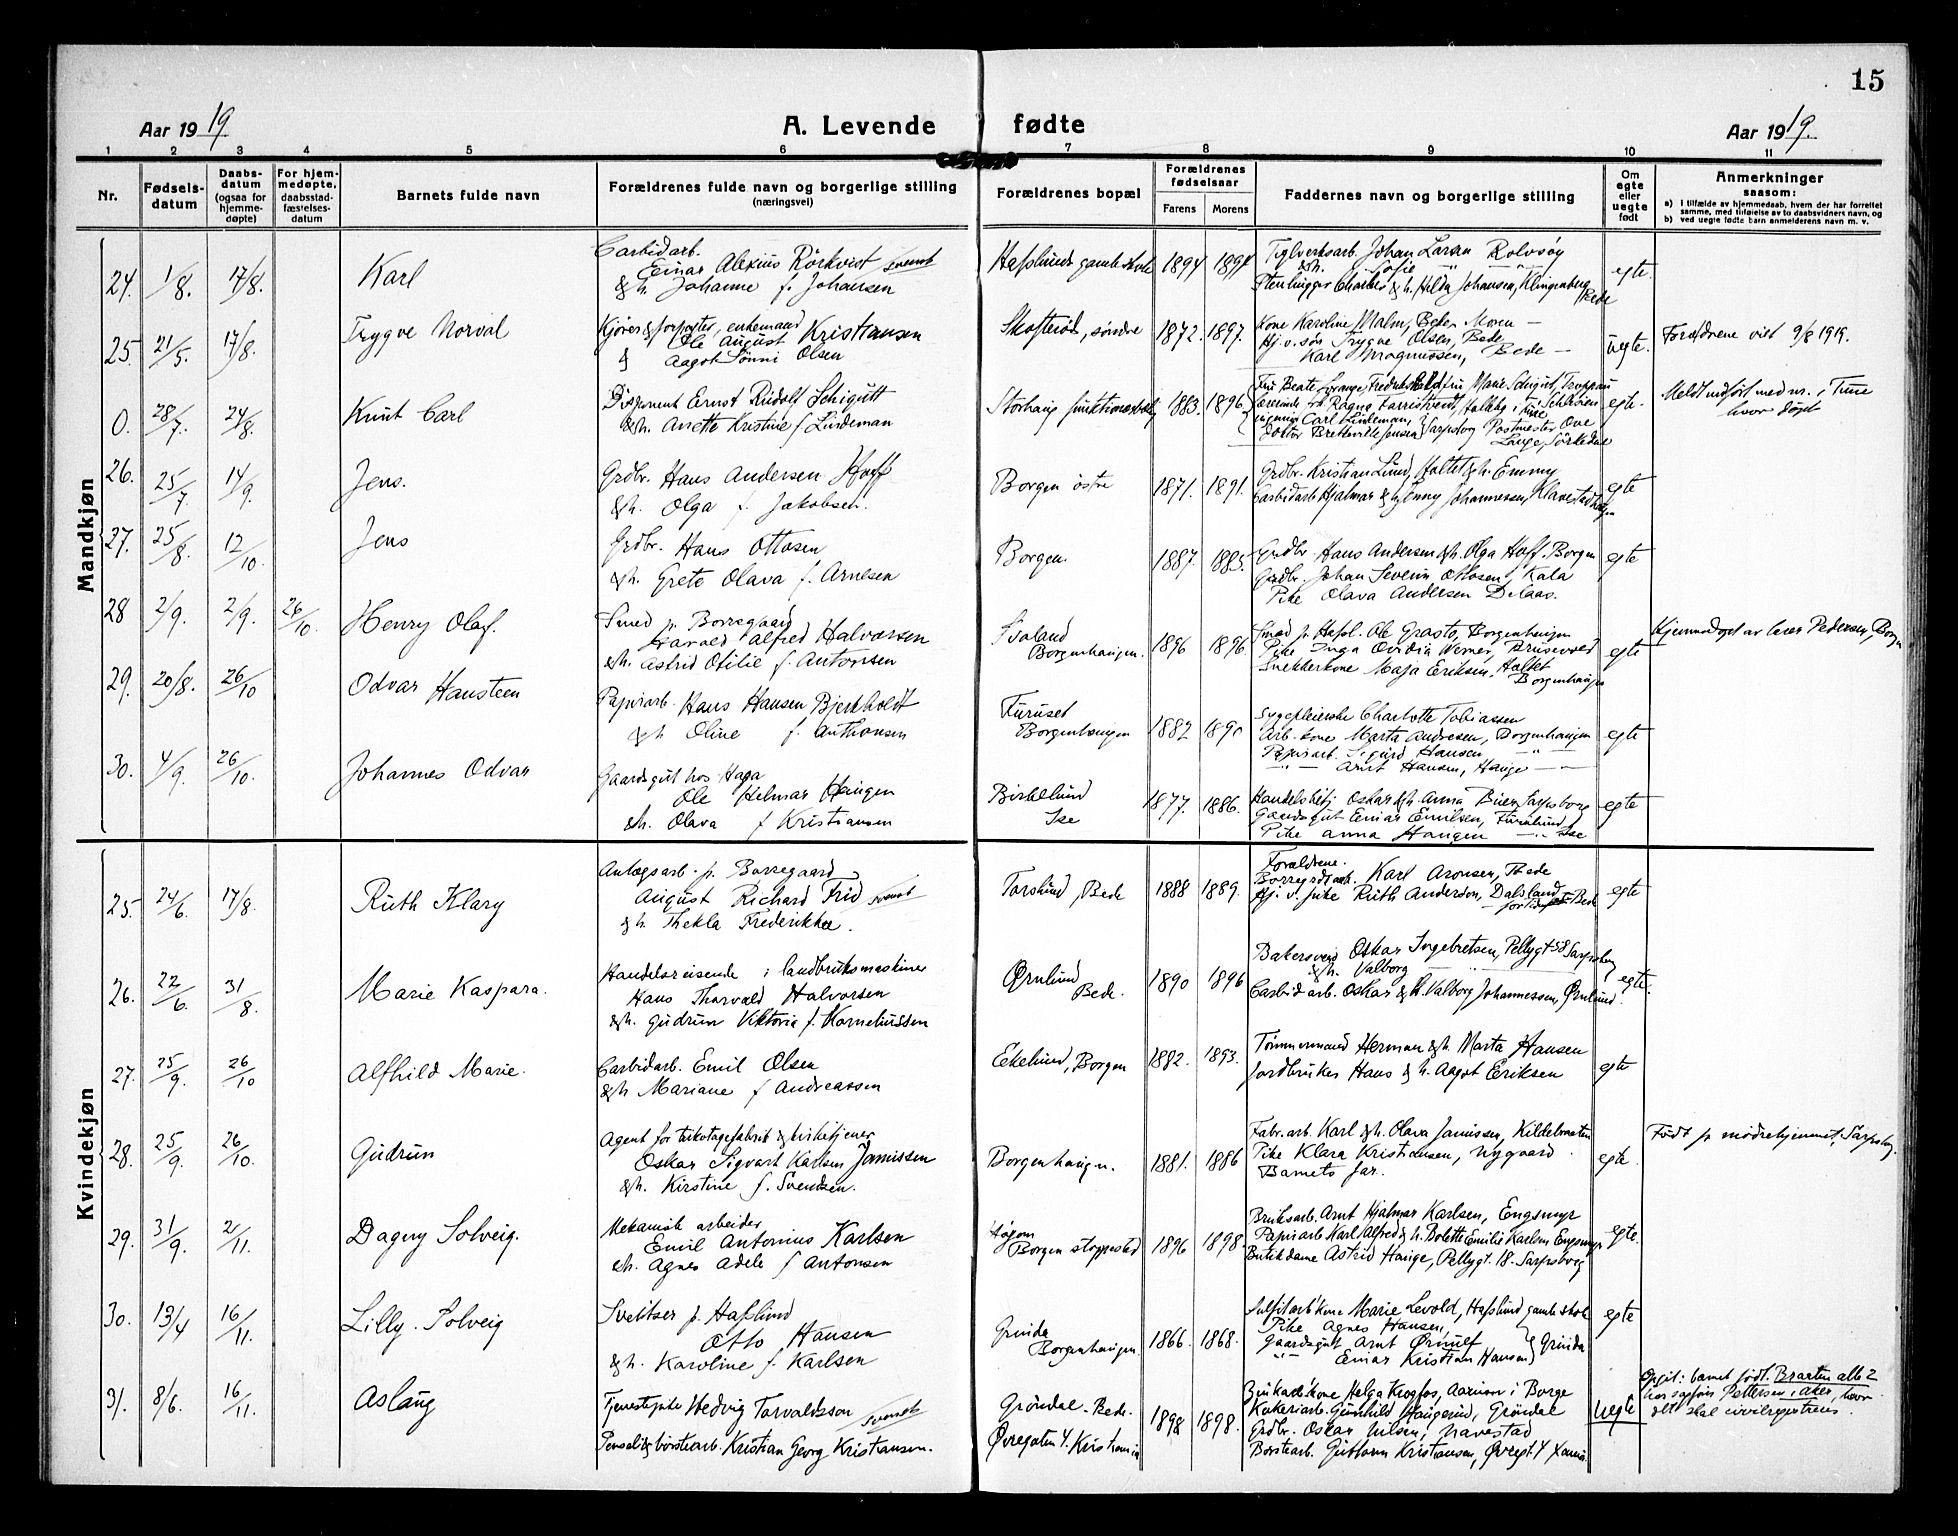 15
Aar 1919
A. Levende fødte
Aar 1919.
1 2 3 4 5 6 7 8 9 10 11
Nr.
Fødsels-
datum
Daabs-
datum
(ogsaa for
hjemme-
døpte)
For hjem-
medøpte,
daabsstad-
fæstelses-
datum
Barnets fulde navn
Forældrenes fulde navn og borgerlige stilling
(næringsvei)
Forældrenes bopæl
Forældrenes
fødselsaar
Farens Morens
Faddernes navn og borgerlige stilling
Om
egte
eller
uegte
født
Anmerkninger
saasom:
a) I tilfælde av hjemmedaab, hvem der har forrettet
samme, med tilføielse av to daabsvidners navn, og
b) ved uegte fødte barn anmelderens navn m. v.
Mandkjøn
24. 1/8. 17/8. Karl
Carbidarb.
Einar Alexius Rörkvist svensk
& h. Johanne f. Johansen
Hafslund gamle skole 1894 1894
Tiglverksarb. Johan Larsen Rolvsøy
& h. Sofie
Stenhugger Charles & h. Hilda Johansen, Klingenberg Bede
egte.
25. 21/5. 17/8. Trygve Norval
Kjører & forpagter, enkemand
Ole August Kristiansen
& Aagot Sønni Olsen
Skofterød, søndre 1872. 1897.
Kone Karoline Malm, Bede
Hj.v. søn Trygve Olsen, Bede
Karl Magnussen, Bede
uegte.
Forældrene viet 9/8 1919.
0. 28/7. 24/8. Knut Carl
Disponent Ernst Rudolf Schigutt
& h. Anette Kristine f. Lindeman
Storhaug funktionærbolig 1883. 1896.
Carl Lindeman,
Sarpsborg Postmester Ove
Lange, Sörkedal
egte.
Meldt indført med nr. i Tune
hvor døpt
26. 25/7. 14/9. Jens.
Grdbr. Hans Andersen Hoff
& h. Olga f. Jakobsen.
Borgen østre 1871. 1891.
Grdbr. Kristian Lund, Holtet & h. Emmy
Carbidarb. Hjalmar & h. Jenny Johannessen, Klavestadhaugen
egte
27. 25/8. 12/10. Jens
Grdbr. Hans Ottosen
& h. Grete Olava f. Arnesen
Borgen. 1887. 1885.
Grdbr Hans Andersen & h. Olga Hoff. Borgen
Grdbr. Johan Severin Ottosen, Kala
Pike Olava Andersen Delaas.
egte
28 2/9. 2/9. 26/10. Henry Olaf.
Smed p. Borregaard
Harald Alfred Halvorsen
& h. Astrid Otilie f. Antonsen
Solland
Borgenhaugen. 1896 1896
Smed p. Hafsl. Ole Grasto, Borgenhaugen
Pike Inga Ovidia Werner, Brusevold
Snekkerkone Maja Eriksen. Holtet
Borgenhaugen
egte
Hjemmedøpt av lærer Pedersen, Borgen
29. 20/8. 26/10 Odvar Hansteen
Papirarb. Hans Hansen Bjerkholdt
& h Oline f. Anthonsen
Furuset
Borgenhaugen 1882 1890
Sygepleierske Charlotte Tobiassen
Arb. kone Marta Andresen, Borgenhaugen
Papirarb. Sigurd Hansen
Arnt Hansen, Hauge
egte
30. 4/9. 26/10. Johannes Odvar
Gaardsgut hos Haga
Ole Helmar Haugen
& h. Olava f Kristiansen
Birkelund
Ise 1877. 1886.
Handelsbetj Oskar & h. Anna Buer, Sarpsborg
Gaardsgut Einar Emilsen, Furulund
Pike Anna Haugen Ise
egte
Kvindekjøn
25. 24/6. 17/8. Ruth Klary
Anlægsarb. p. Borregaard
August Richard Frid svensk
& h. Thekla Frederikke.
Torslund, Bede 1888 1889.
Forældrene.
Borregrdarb. Karl Aronsen, Bede
Hj. v. pike Ruth Anderson, Dalsland
Bede
egte
26. 22/6. 31/8. Marie Kaspara.
Handelsreisende i landbruksmaskiner
Hans Thorvald Halvorsen
& h. Gudrun Viktoria f. Korneliussen
Ørnlund
Bede. 1890 1896
Bakersvend Oskar Ingebretsen, Pellygt 58 Sarpsborg
& h. Valborg
Carbidarb. Oskar & h. Valborg Johannessen, Ørnlund.
egte.
27. 25/9. 26/10 Alfhild Marie.
Carbidarb. Emil Olsen
& h Mariane f Andreassen
Ekelund, Borgen 1882. 1893.
Tömmermand Herman & h. Marta Hansen
Jordbruker Hans & h. Aagot Eriksen
egte
28. 25/9. 26/10. Gudrun
Agent for trikotagefabrik & kirketjener
Oskar Sigvart Karlsen Jamissen
& h. Kirstine f. Svendsen.
Borgenhaugen. 1881. 1886
Fabr. arb. Karl & h. Olava Jamissen, Kildebraaten
Pike Klara Kristiansen, Nygaard
Barnets far.
egte.
Født p mødrehjemmet, Sarpsborg.
29. 31/9. 2/11. Dagny Solveig.
Mekanisk arbeider
Emil Antonius Karlsen
& h. Agnes Adele f Antonsen
Högom
Borgen stoppested 1896 1898.
Bruksarb. Arnt Hjalmar Karlsen, Engsmyr
Papirarb Karl Alfred & h. Bolette Emilie Karlsen Engsmyr
Butikdame Astrid Hauge, Pellygt. 18. Sarpsborg
egte.
30. 13/4 16/11. Lilly Solveig
Sveitser p. Hafslund
Otto Hansen
& h. Karoline f. Karlsen
Grinda
Borgenhaugen. 1866. 1868.
Sulfitarb kone Marie Levold, Hafslund gamle skole
Pike Agnes Hansen,
Gaardsgutt Arnt Ørnulf
Einar Kristian Hansen } Grinda
egte
31. 8/6. 16/11. Aslaug
Tjenestepike Hedvig Torvaldsson svensk
Pensel & børstearb. Kristian Georg Kristiansen.
Gröndal. Bede.
Øvregaten 4. Kristiania 1898 1898.
Helga Krogfos, Aarum i Borge
Kokeriarb. Gunhild Haugerud, Gröndal
Grdbr. Oskar Nilsen, Navestad
Børstearb. Guttorm Kristiansen, Øvregt 4 Xania.
uegte
Opgit: barnet født. Braaten alle 2
hos Pettersen, Aker, hvor
det skal civilregistreres.